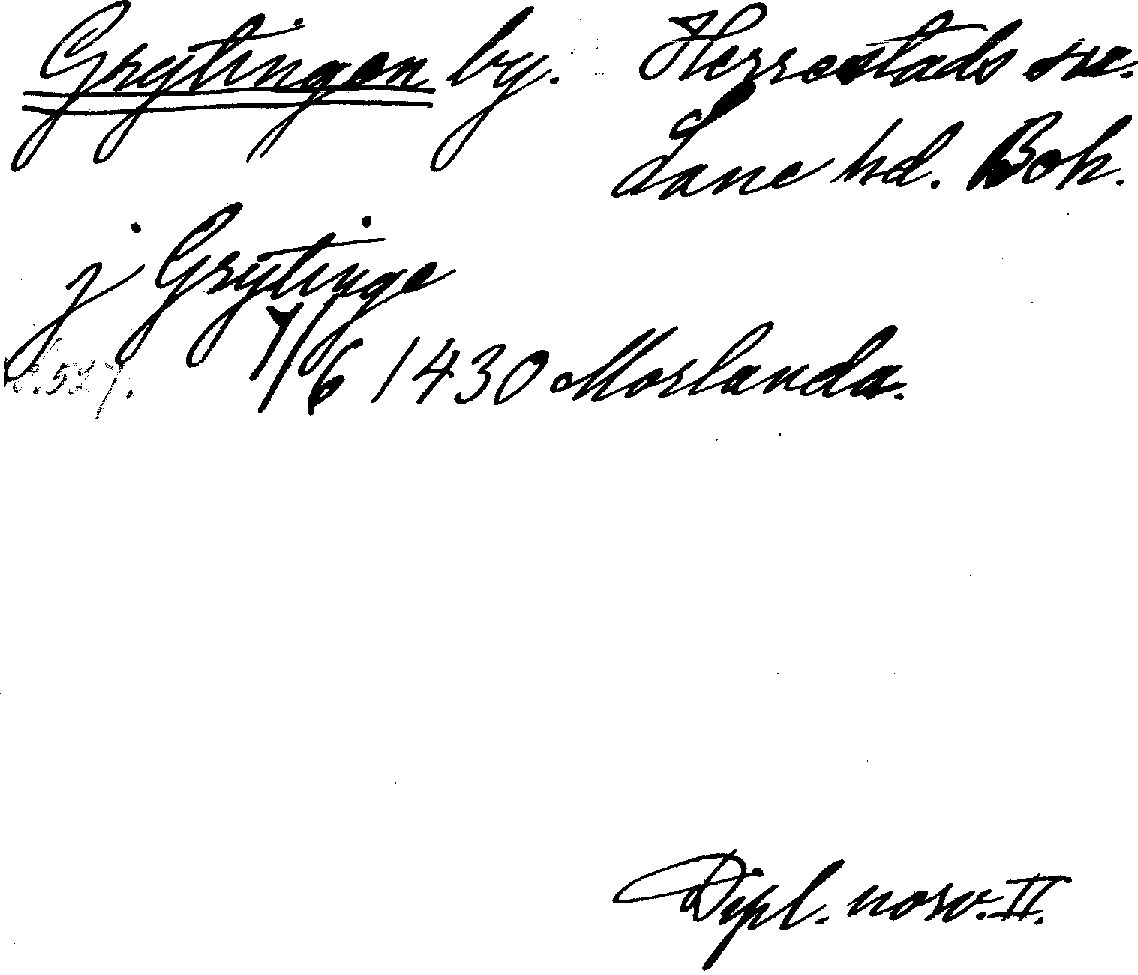 Grytingen by. Herrestads sn.
Lane hd. Boh.
j Grytinge
s. 527. 7/6 1430 Morlanda.
Dipl. norv. II.